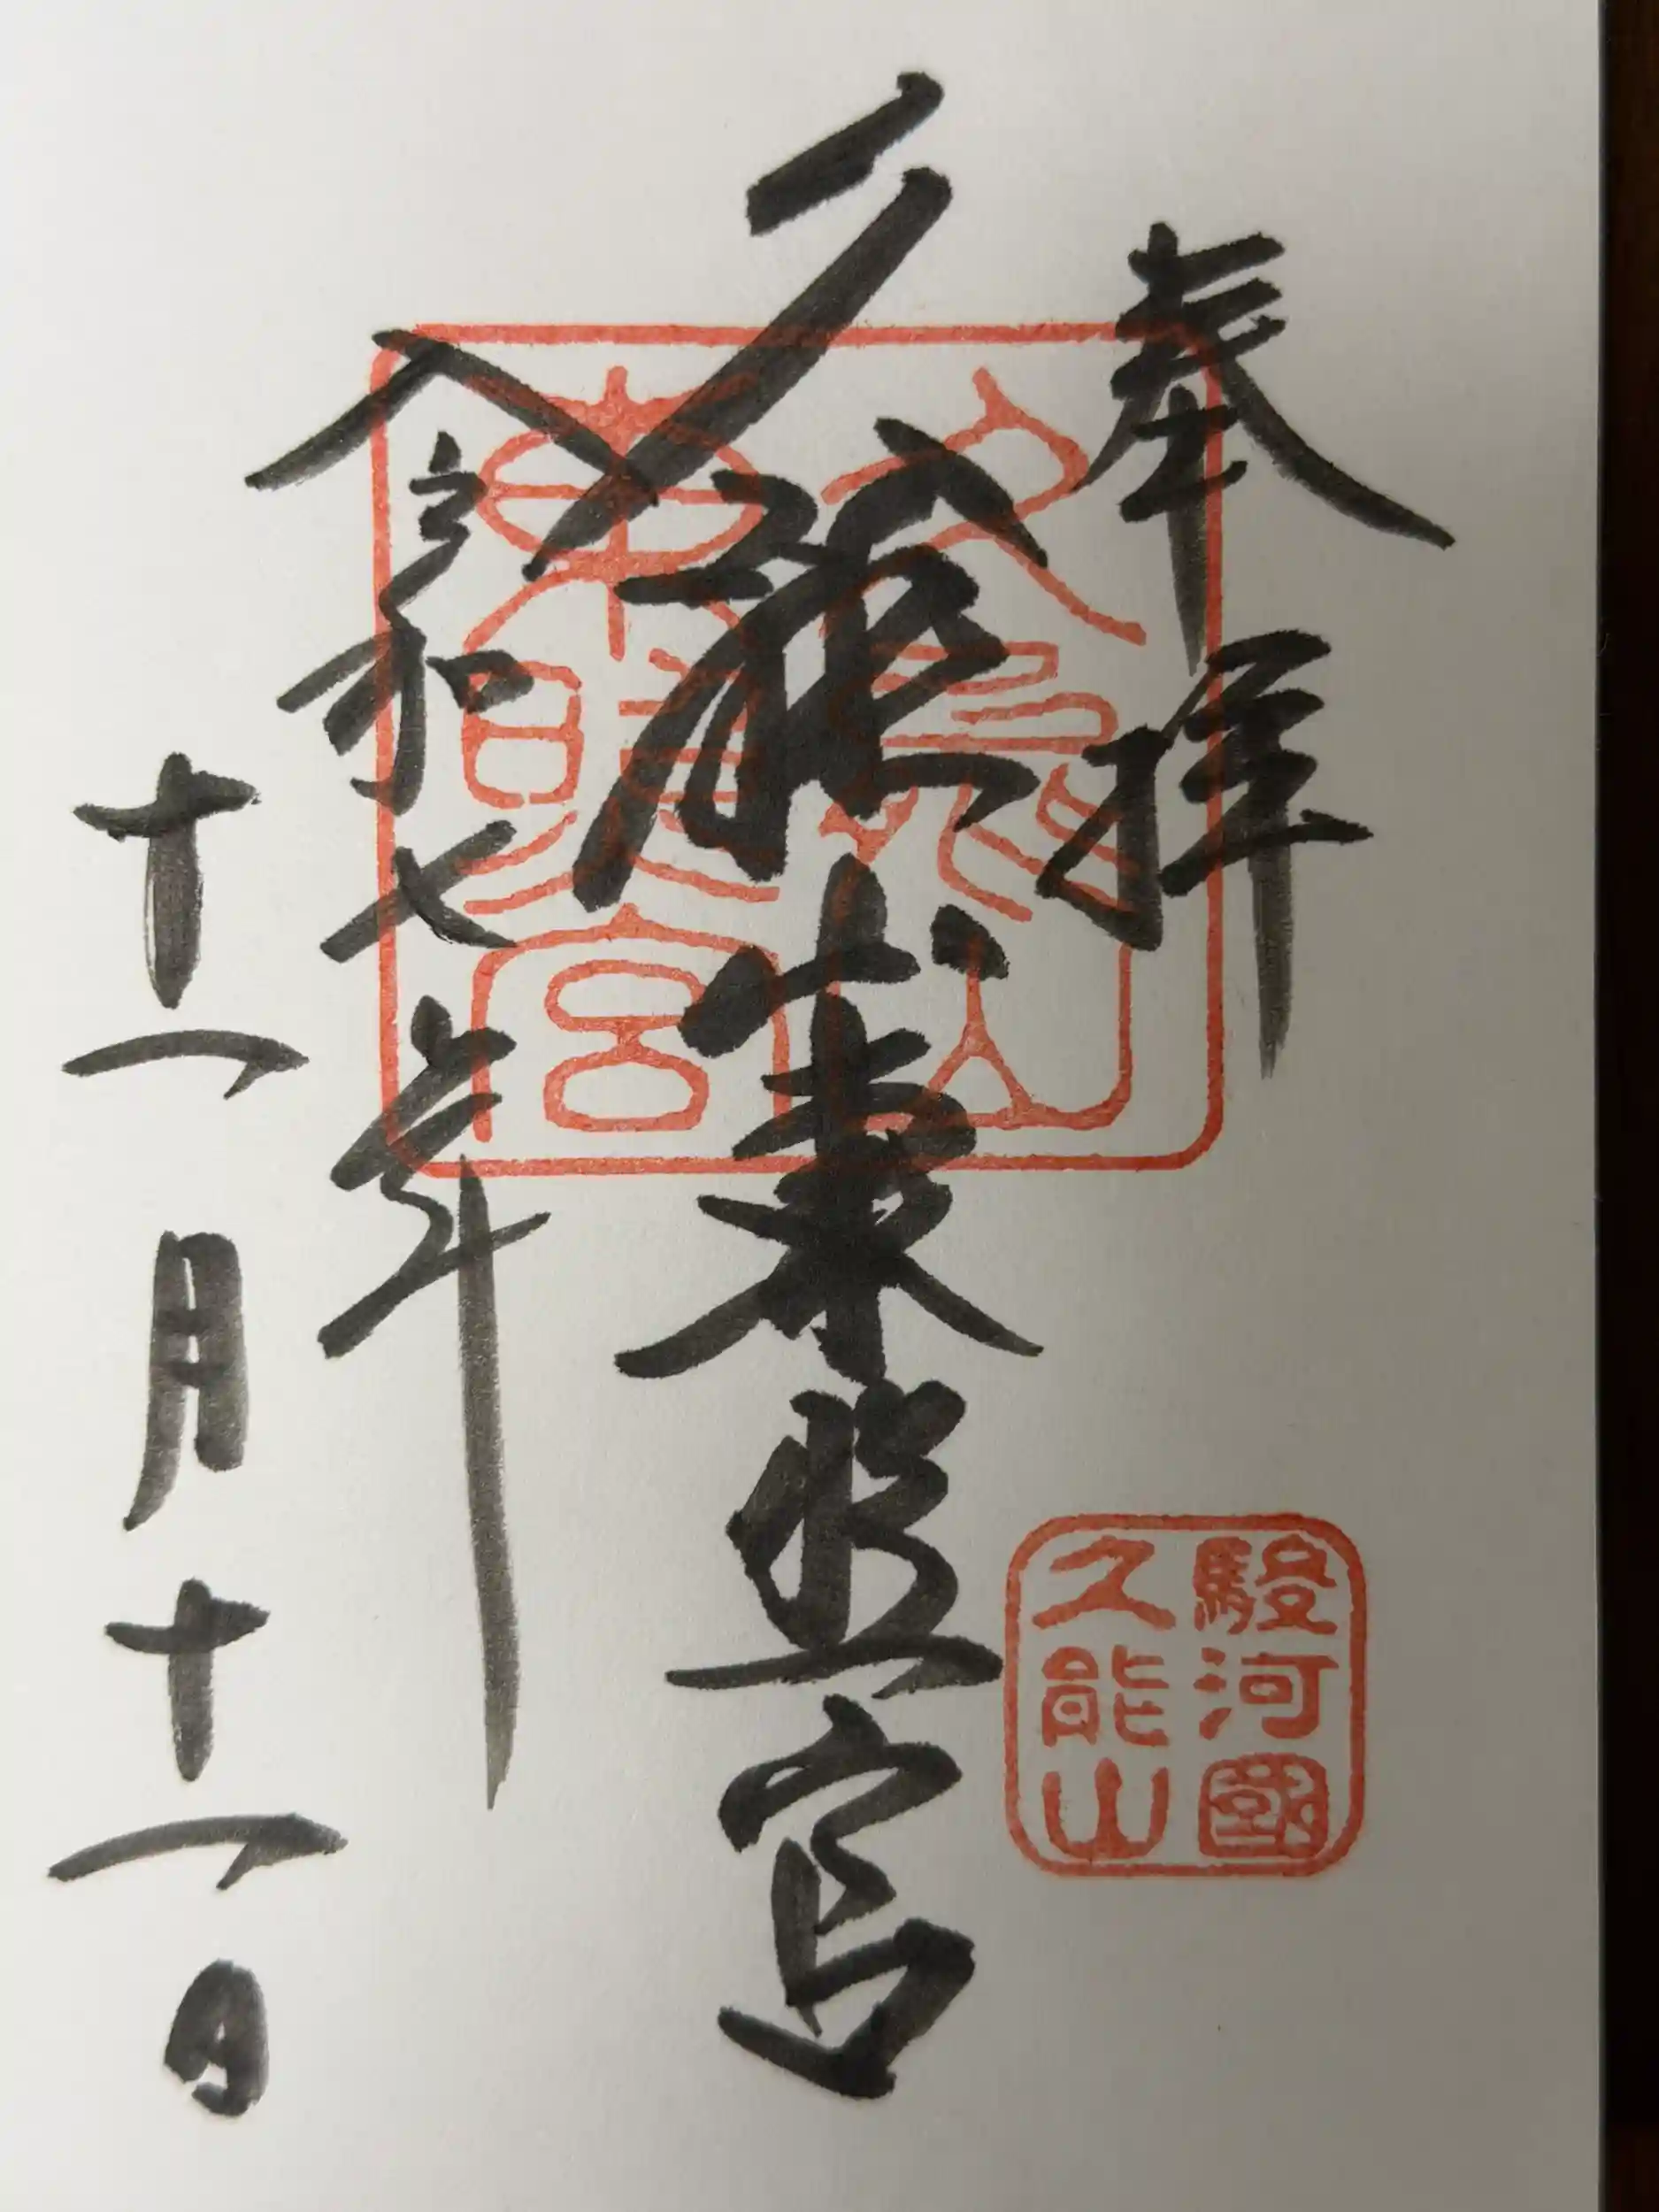 奉拝
駿河國
久能山
久能山東照宮
久能山
東照宮
令和七年
十一月十一日